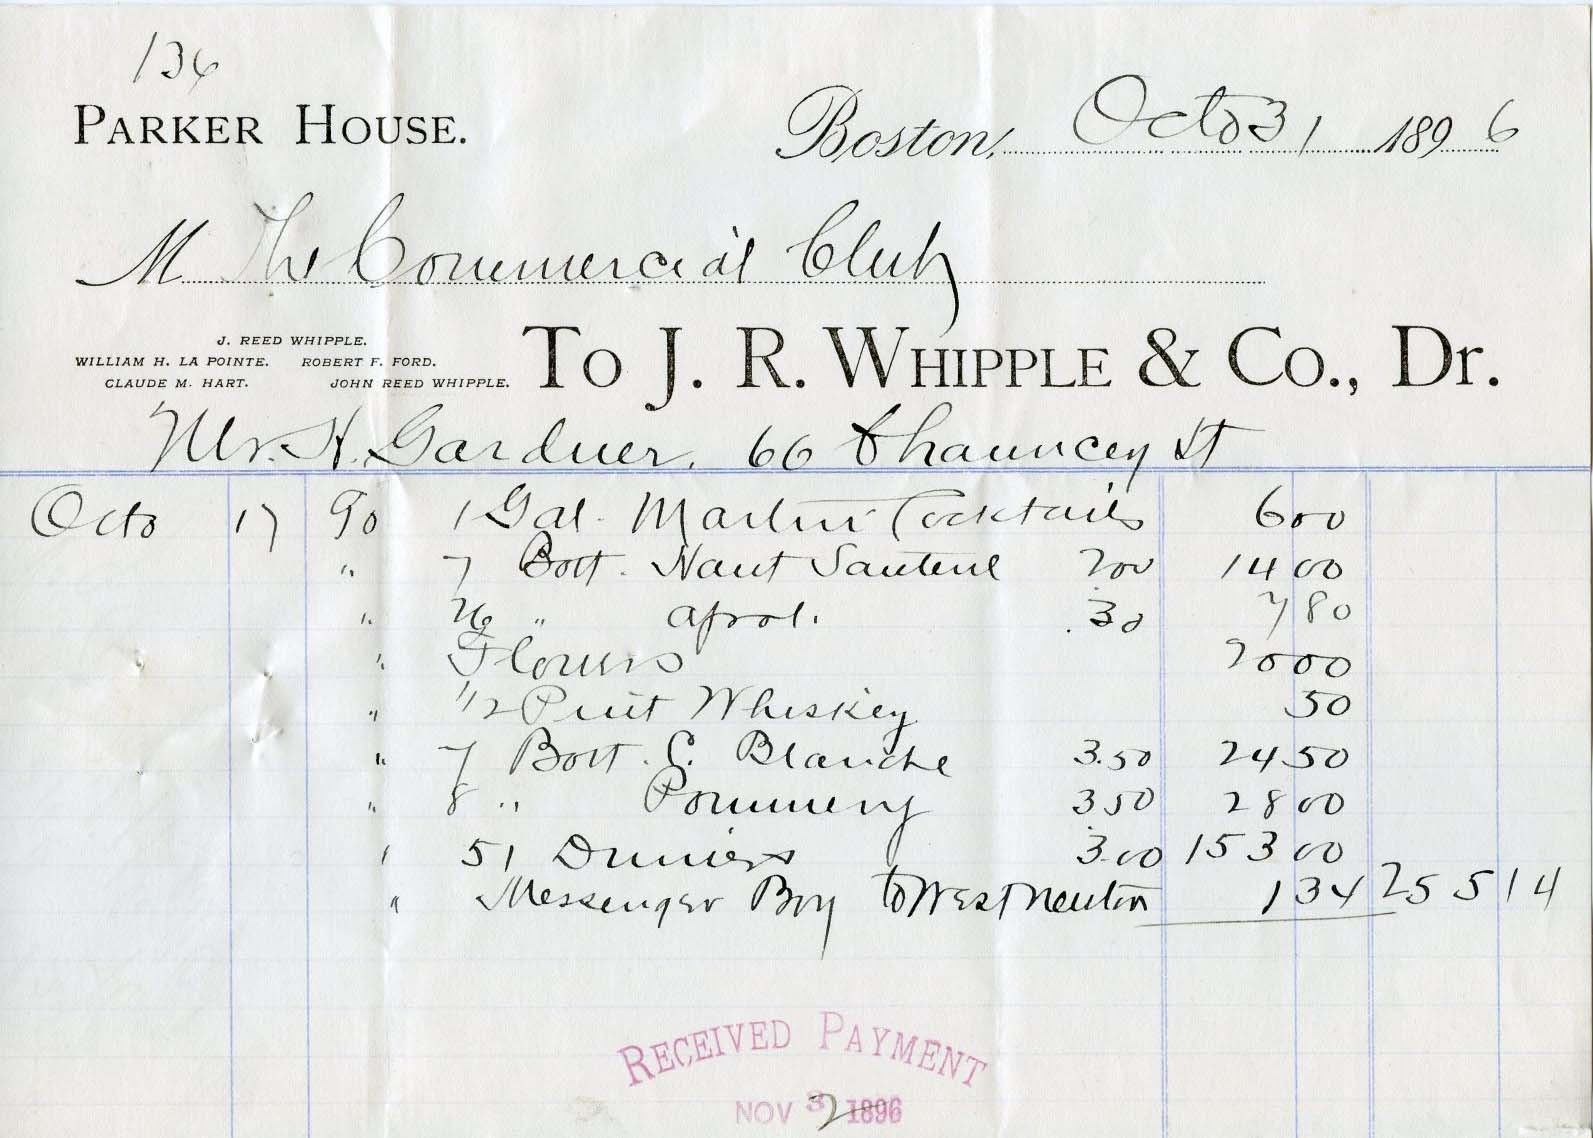 136
PARKER HOUSE.
Boston, Octo 31 1896
M The Commercial Club
J. REED WHIPPLE.
WILLIAM H. LA POINTE. ROBERT F. FORD.
CLAUDE M. HART. JOHN REED WHIPPLE.
To J. R. WHIPPLE & Co., Dr.
Mr. H. Gardner. 66 Chauncey St
Octo 17 To 1 Gal. Martini Cocktails 6 00
" 7 Bott. Haut Sauterne 2 00 14 00
" 26 " Apol. .30 7 80
" Flowers 20 00
" 1/2 Pint Whiskey 50
" 7 Bott. C. Blanche 3.50 24 50
" 8 " Pommery 3 50 28 00
" 51 Dinners 3.00 153 00
" Messenger Boy to West Newton 1 34 255 14
RECEIVED PAYMENT
NOV 3 2 1896